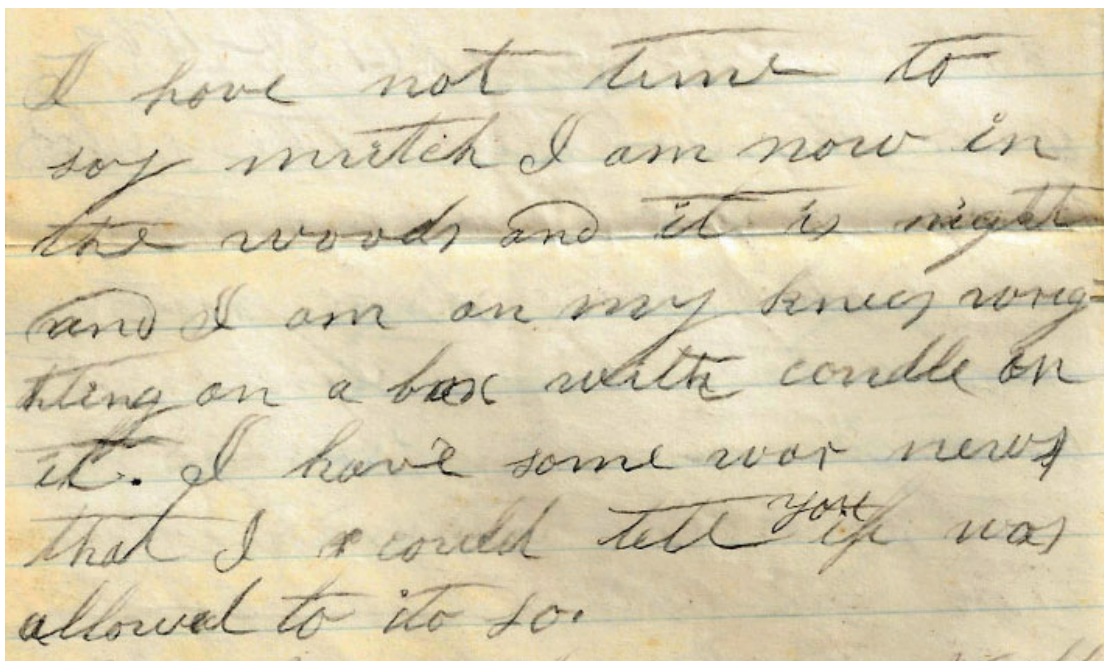 I have not time to
say mutch I am now in
the woods and it is night
and I am on my knees wrig-
hting on a box with candle on
it. I have some war news
that I could tell you if was
allowed to do so.